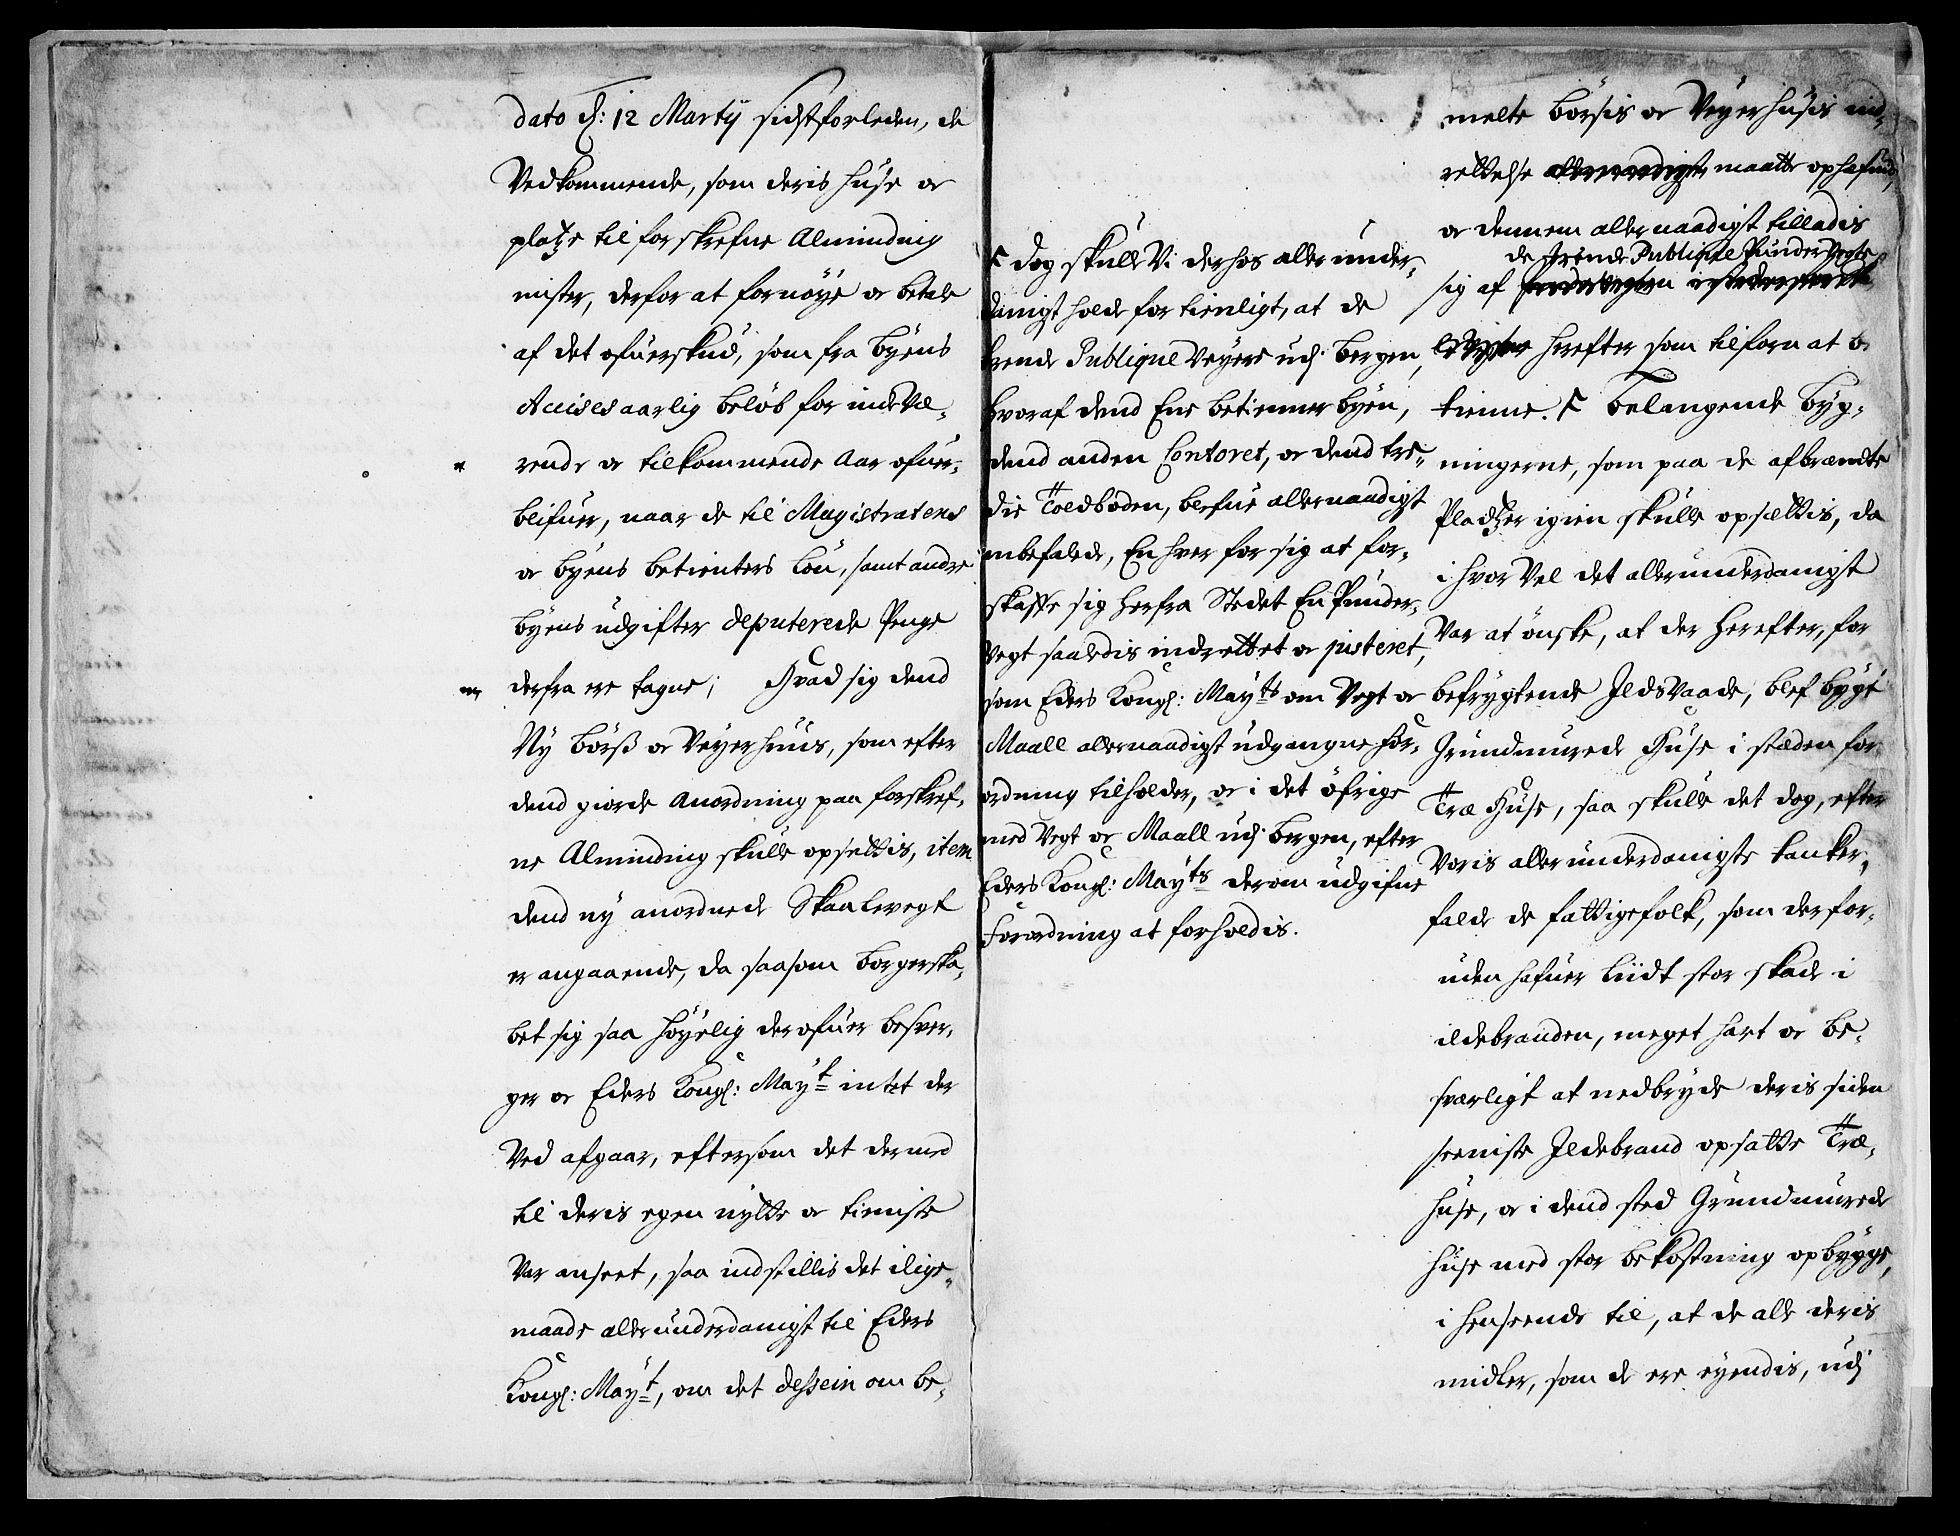 dato d: 12 Martij sidstforleden, de
Vedkommende, som deris huse oc
platze til forskrefne Alminding
mister, derfor at fornöye oc betale
af det ofuerskud, som fra byens
Accises aarlig beløb for indevæ-
rende oc tilkommende Aar ofuer-
blifuer, naar de til Magistratens
oc byens betienters Løn, samt andre
byens udgifter deputerede Penge
derfra ere tagne; Hvad sig dend
Ny börss oc Veyerhuus, som efter
dend giorde anordning paa forskref-
ne Alminding skulle opsettis, item
dend ny anordnede Skaalevegt
er angaaende, da saasom borgerska-
bet sig saa höyelig derofuer besver-
ger oc Eders Kongl: Mayt intet der
Ved afgaar, eftersom det dermed
til deris egen nytte oc tieniste
Var anseet, saa indstillis det i lige-
maade allerunderdanigst til Eders
Kongl: Mayt, om det dessein om be-
F dog skulle Vi derhos allerunder-
danigst holde for tienligt, at de
trende Publique Veyere udj bergen,
hvoraf dend Ene betienner byen,
dend anden Contoret, oc dend tre-
die Toldboden, blefue allernaadigst
anbefalede, En hver for sig at for-
skaffe sig herfra Stedet En Punder-
Vegt saaledis indrettet oc justeret,
som Eders Kongl: Mayts om Vegt oc
Maall allernaadigst udgangne For-
ordning tilholder, oc i det öfrige
med Vegt oc Maall udj bergen, efter
Eders Kongl: Mayts derom udgifne
Forordning at forholdis.
melte börsis oc Veyerhusis ind-
rettelse allernaadigst maatte ophefuis,
oc dennem allernaadigst tilladis
de trende Publique Punder Vegte
sig af
herefter som tilforn at be
tienne. F belangende byg-
ningerne, som paa de afbrændte
Pladtzer igien skulle opsettis, da
i hvor Vel det allerunderdanigst
Var at önske, at der herefter, for
befrygtende Ilds Vaade, blef bygt
Grundmurede Huse i stæden for
Træ Huse, saa skulle det dog, efter
Voris allerunderdanigste tanker,
falde de fattige folk, som der for-
uden hafuer liidt stor skade i
ildebranden, meget hart oc be-
sværligt at nedbryde deris siden
seeniste Ildebrand opsatte Træ-
huse, oc i dend sted Grundmurede
huse med stor bekostning opbygge,
i henseende til, at de alle deris
midler, som de ere eyendis, udj